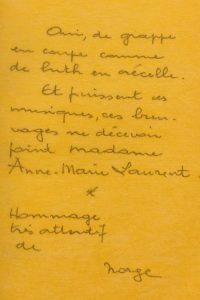 Oui, de grappe
en coupe comme
de luth en nacelle.
Et puissent ces
musiques, ces breu-
vages ne décevoir
point madame
Anne-Marie Laurent.
*
Hommage
très attentif
de
Norge